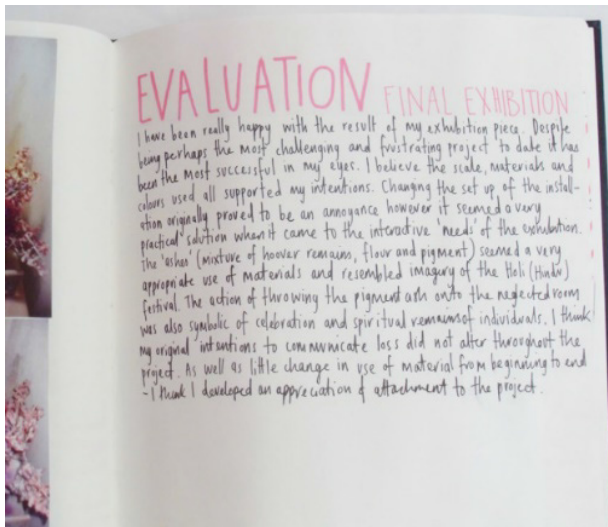 EVALUATION FINAL EXHIBITION
I have been really happy with the result of my exhibition piece. Despite
being perhaps the most challenging and frustrating project to date it has
been the most successful in my eyes. I believe the scale, materials and
colours used all supported my intentions. Changing the set up of the install-
ation originally proved to be an annoyance however it seemed a very
practical solution when it came to the interactive 'needs' of the exhibition.
The 'ashes' (mixture of hoover remains, flour and pigment) seemed a very
appropriate use of materials and resembled imagery of the Holi (Hindu)
festival. The action of throwing the pigment ash onto the neglected room
was also symbolic of celebration and spiritual remains of individuals. I think
my original intentions to communicate loss did not alter throughout the
project. As well as little change in use of material from beginning to end
- I think I developed an appreciation & attachment to the project.